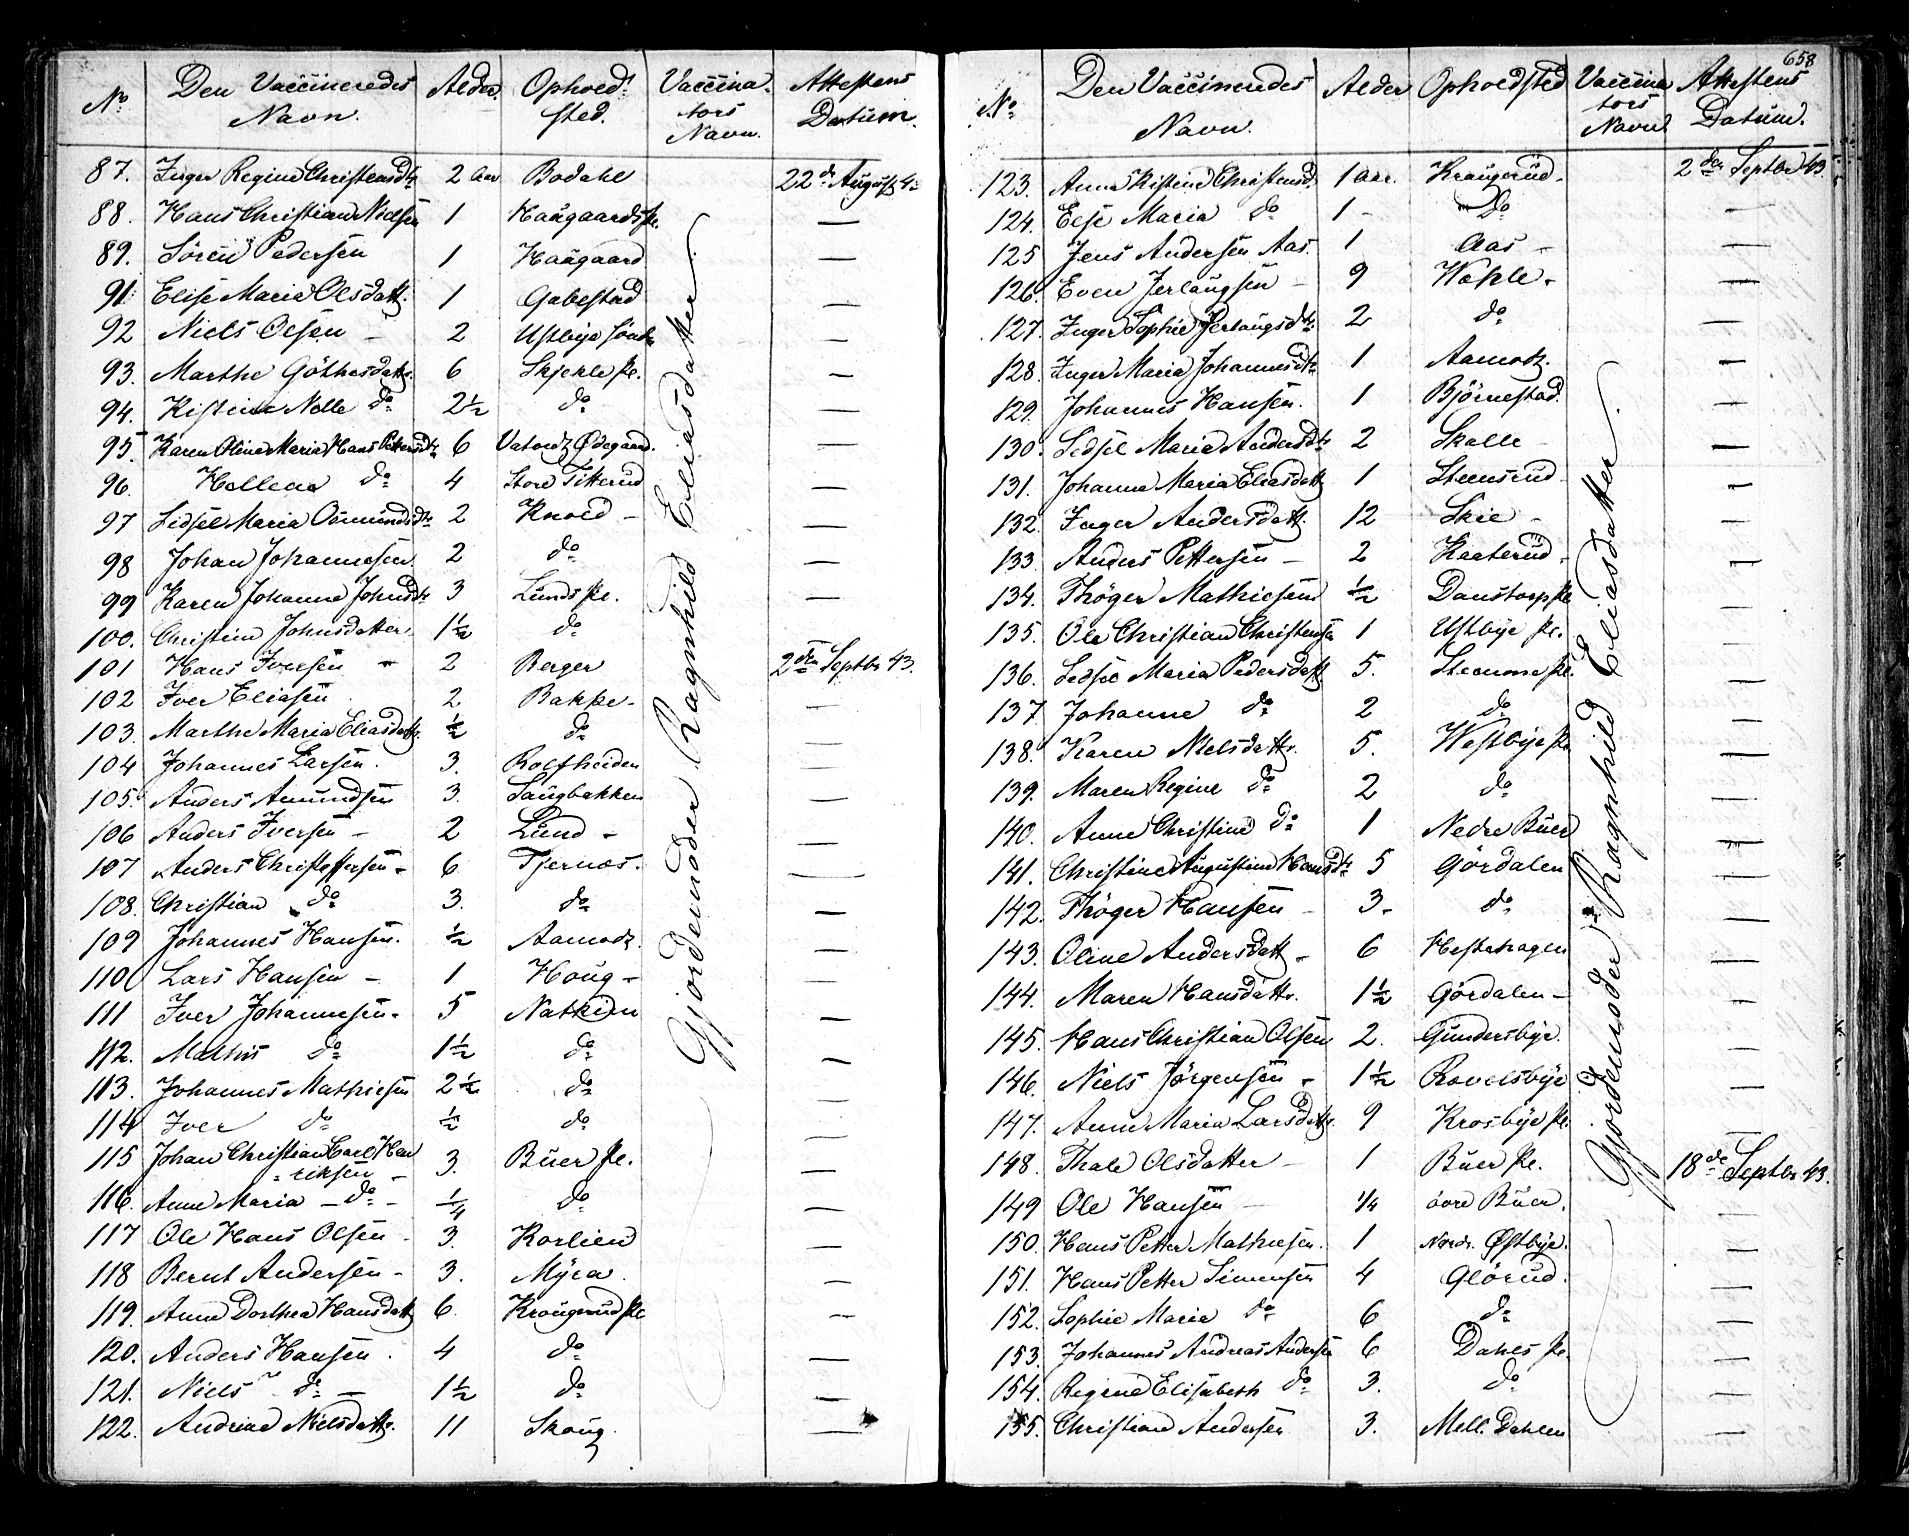 658
No. Den Vaccineredes Navn. Alder. Ophold-sted. Vaccina-tors Navn. Attestens Datum.
87. Inger Regine Christensdtr 2 aar Bodahl 22de August 4
88. Hans Christian Nielsen 1 Haagaardspl. —
89. Sören Pedersen 1 Haagaard —
91. Elise Maria Olsdatt. 1 Gabestad —
92 Niels Olsen — 2 Ustbye —
93. Marthe Göthesdatt. 6 Skjehle pl. —
94. Kistine Nelle do 2½ do —
95. Karen Oline Maria Hans Pettersdtr 6 Vatvedt Ødegaard. —
96. Hellena do 4 Store Titterud —
97 Sidsel Maria Osmundsdtr 2 Knold — —
98 Johan Johannesen. 2 do —
99 Karen Johanne Johnsdtr 3 Lunds pl. —
100. Christine Johnsdatter. 1½ do —
101 Hans Iversen — 2 Berger 2den Septbr 43.
102 Iver Eliasen 2 Bakke — —
103. Marthe Maria Eliasdatt. ½ do —
104 Johannes Larsen. 3. Rolfheiden —
105. Anders Amundsen 3. Saugbakken —
106 Anders Iversen — 2 Lund — —
107 Anders Christoffersen — 6 Tjernæs. —
108. Christian do 3. do —
109 Johannes Hansen. ½ Aamodt. —
110 Lars Hansen — 1 Houg — —
111 Iver Johannesen. 5 Natkim —
112. Mathis do 1½ do —
113. Johannes Mathiesen 2½ do —
114 Iver do ½ do —
115 Johan Christian Carl Hen-
riksen 3. Buer pl. —
116. Anne Maria — do — ¼ do —
117 Ole Hans Olsen — 3. Korlien —
118 Bernt Andersen — 3. Myra. —
119. Anne Dorthea Hansdatt 6. Kraugerud pl —
120. Anders Hansen. 4 do —
121. Niels do — 1½ do —
122. Andrine Nielsdatt. 11 Skoug. —
Gjordemoder Ragnhild Eliasdatter.
No. Den Vaccineredes Navn. Alder Opholdsted Vaccina-tors Navn Attestens Datum.
123. Anne Kistine Christensd. 1 aar. Kraugerud. 2den Septbr 43
124. Else Maria do 1 — do —
125 Jens Andersen Aas. 1 Aas — —
126. Even Jerlaugsen — 9 Wohle — —
127. Inger Sophie Jerlaugsdtr. 2 do —
128. Inger Maria Johannesdtr 1 Aamodt. —
129. Johannes Hansen. 1 Björnestad. —
130. Sidsel Maria Andersdtr 2 Skolle — —
131. Johanne Maria Eliasdatt 1 Steensrud —
132. Inger Andersdatt. 12 Skie — —
133. Anders Pettersen — 2 Kaaterud — —
134. Thöger Mathiesen ½ Danstorp pl —
135. Ole Christian Christensen 1 Ustbye pl. —
136. Sidsel Maria Pedersdatt 5. pl. —
137. Johanne do 2 do —
138. Karen Nielsdatt. 5. Westbye pl —
139. Maren Regine do 2 do —
140. Anne Christine do 1 Nedre Buer —
141. Christine Augustine Hansdtr 5 Gördalen —
142. Thöger Hansen — 3 — do —
143. Oline Andersdatt — 6 Hestehagen —
144. Maren Hansdattr. 1½ Gördalen — —
145. Hans Christian Olsen 2. Gundersbye. —
146. Niels Jörgensen — 1½ Rovelsbye —
147. Anne Maria Larsdatt. 9 Krosbye pl. —
148. Thale Olsdatter — 1 Buer pl. 18de Septbr 43.
149 Ole Hansen — ¼ övre Buer. —
150. Hans Petter Mathiesen. 1 Nordr. Østbye. —
151. Hans Petter Simensen 4 Glörud. —
152. Sophie Maria do 6 do —
153. Johannes Andreas Andersen 6 Dahls pl. —
154. Regine Elisabeth do 3. do —
155. Christian Andersen 3. Mell. Dahlen —
Gjordemoder Ragnhild Eliasdatter.